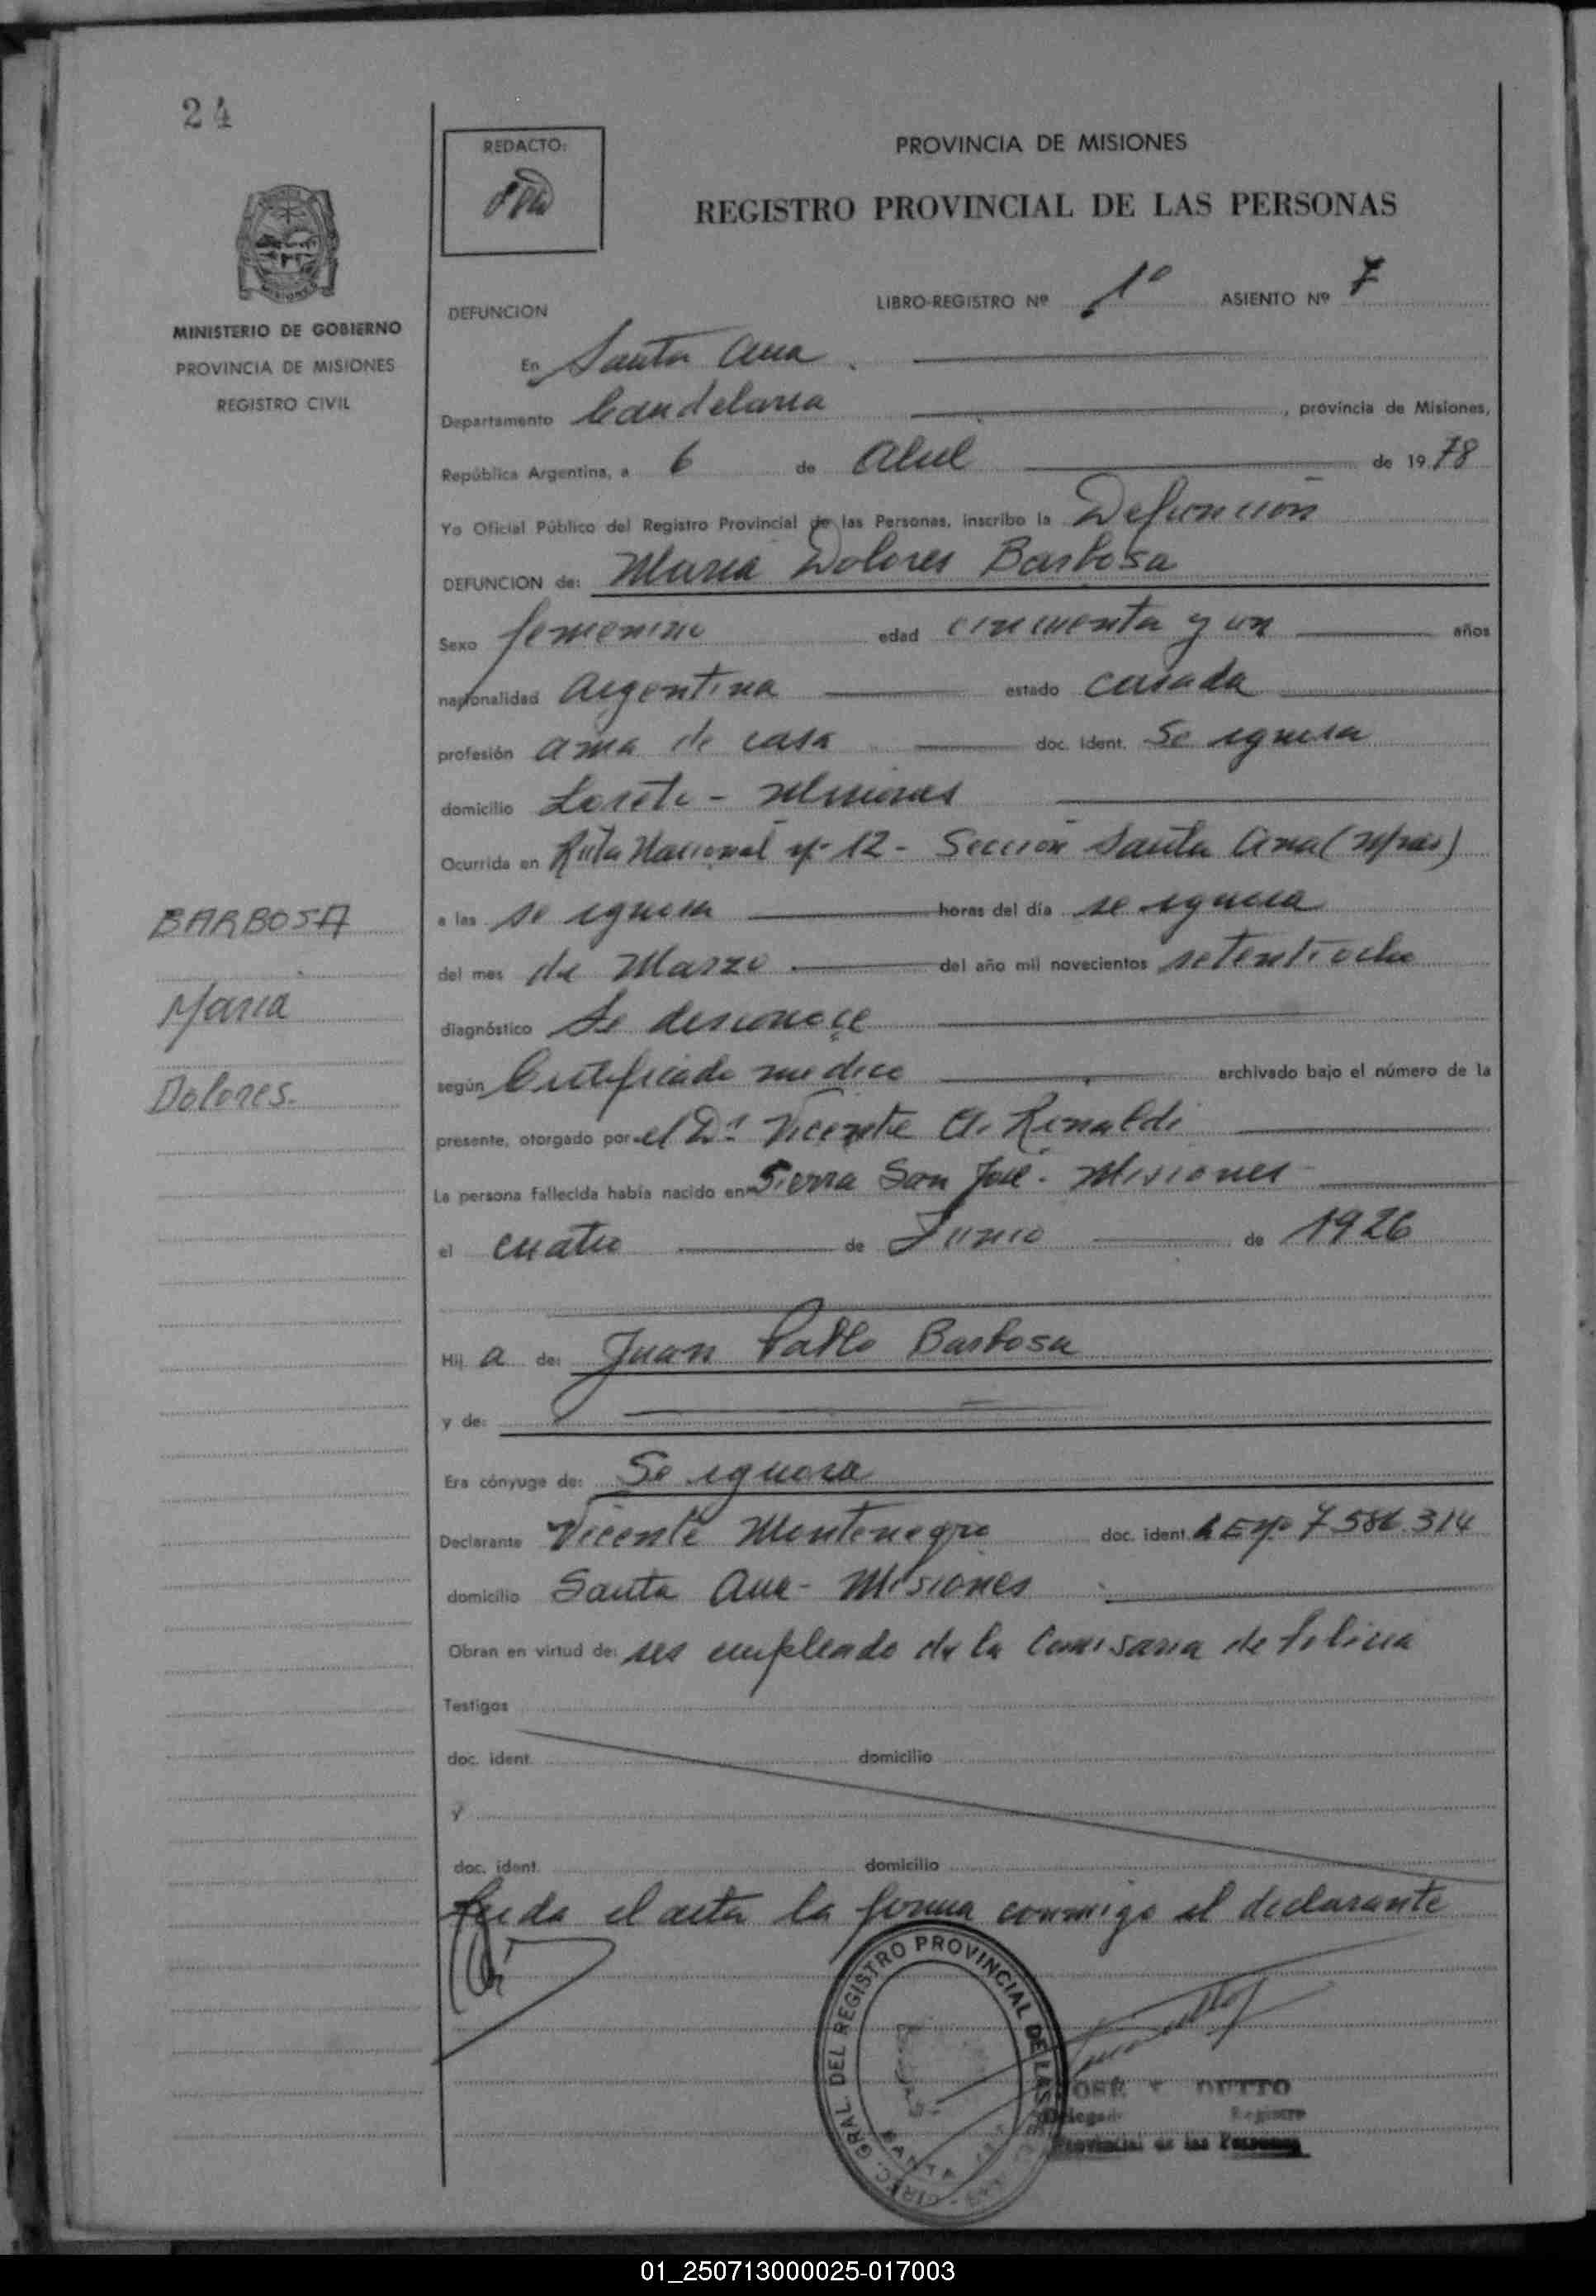 24
REDACTO:
PROVINCIA DE MISIONES
REGISTRO PROVINCIAL DE LAS PERSONAS
MINISTERIO DE GOBIERNO
PROVINCIA DE MISIONES
REGISTRO CIVIL
DEFUNCION
LIBRO-REGISTRO Nº 1º ASIENTO Nº 7
En Santa Ana
Departamento Candelaria, provincia de Misiones,
República Argentina, a 6 de Abril de 1978
Yo Oficial Público del Registro Provincial de las Personas, inscribo la Defunción
DEFUNCION de: Maria Dolores Barbosa
Sexo femenino edad cincuenta y un años
nacionalidad Argentina estado casada
profesión ama de casa doc. ident. Se ignora
domicilio Loreto - Misiones
Ocurrida en Ruta Nacional nº 12 - Sección Santa Ana (Mnes)
a las se ignora horas del día se ignora
del mes de Marzo del año mil novecientos setentiocho
diagnóstico Se desconoce
según Certificado medico archivado bajo el número de la
presente, otorgado por el Dr. Vicente A. Rinaldi
La persona fallecida había nacido en Sierra San José - Misiones
el cuatro de Junio de 1926
Hij a de: Juan Pablo Barbosa
y de:
Era cónyuge de: Se ignora
Declarante Vicente Montenegro doc. ident. L E Nº 7.586.314
domicilio Santa Ana - Misiones
Obran en virtud de: ser empleado de la Comisaria de Policia
Testigos
doc. ident. domicilio
y
doc. ident. domicilio
Leida el acta la firma conmigo el declarante
BARBOSA
Maria
Dolores.
DIREC. GRAL. DEL REGISTRO PROVINCIAL DE LAS
SANTA
JOSÉ
Delegado Registro
Provincial de las Personas
01_250713000025-017003